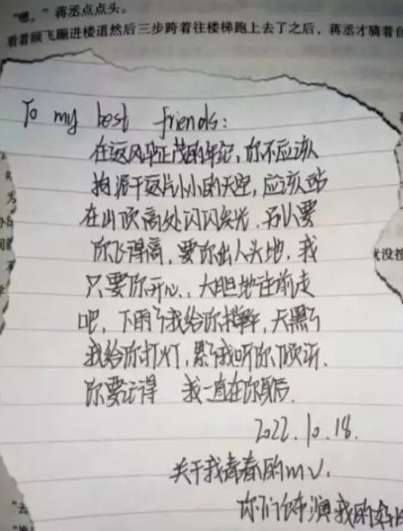 “嗯。”蒋丞点点头。
看着顾飞蹦进楼道然后三步跨着往楼梯跑上去了之后，蒋丞才骑着
To my best friends:
在这风华正茂的年纪，你不应该
拘泥于这片小小的天空，应该站
在山顶高处闪闪发光，别人要
你飞得高，要你出人头地，我
只要你开心、大胆地往前走
吧，下雨了我给你撑伞，天黑了
我给你打灯，累了我听你倾诉.
你要记得 我一直在你身后.
2022.10.18.
关于我青春的mv.
演我的